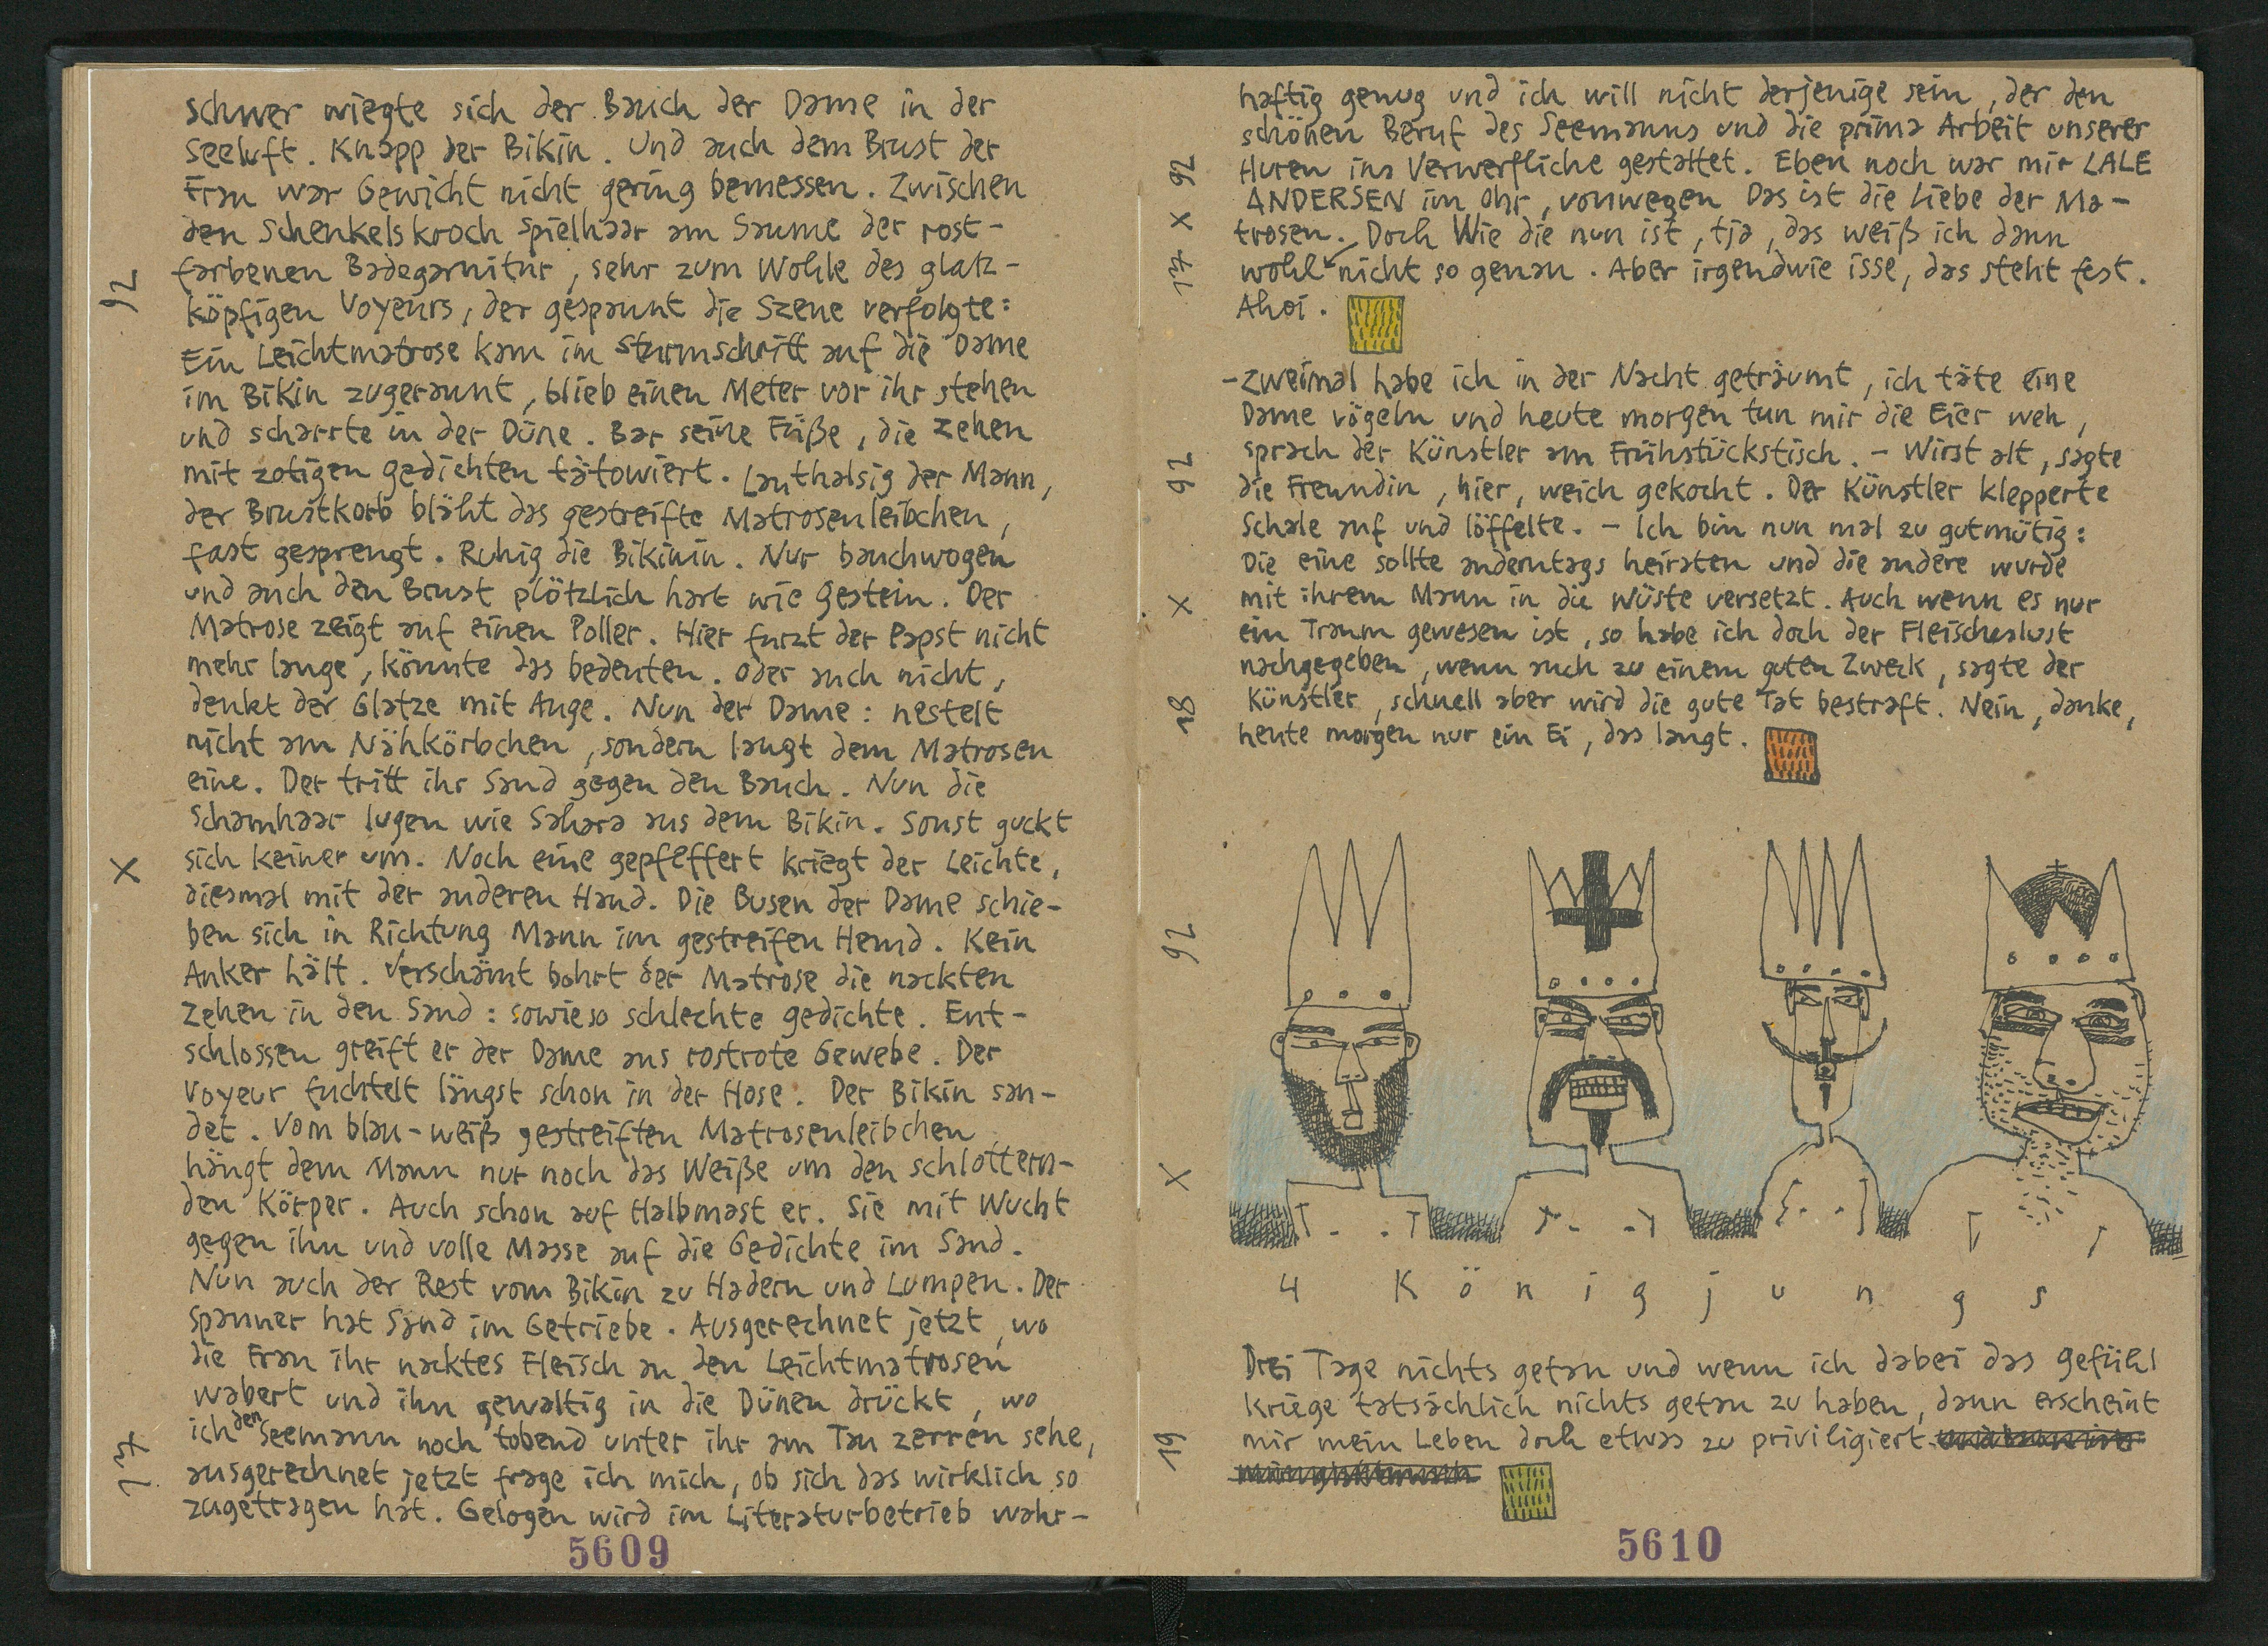 schwer wiegte sich der Bauch der Dame in der
Seeluft. Knapp der Bikin. Und auch dem Brust der
Frau war Gewicht nicht gering bemessen. Zwischen
den Schenkels kroch Spielhaar am Saume der rost-
farbenen Badegarnitur, sehr zum Wohle des glatz-
köpfigen Voyeurs, der gespannt die Szene verfolgte:
Ein Leichtmatrose kam im Sturmschritt auf die Dame
im Bikin zugerannt, blieb einen Meter vor ihr stehen
und scharrte in der Düne. Bar seine Füße, die Zehen
mit zotigen Gedichten tätowiert. Lauthalsig der Mann,
der Brustkorb bläht das gestreifte Matrosenleibchen,
fast gesprengt. Ruhig die Bikinin. Nur bauchwogen
und auch den Brust plötzlich hart wie Gestein. Der
Matrose zeigt auf einen Poller. Hier furzt der Papst nicht
mehr lange, könnte das bedeuten. Oder auch nicht,
denkt der Glatze mit Auge. Nun der Dame: nestelt
nicht am Nähkörbchen, sondern langt dem Matrosen
eine. Der tritt ihr Sand gegen den Bauch. Nun die
Schamhaar lugen wie Sahara aus dem Bikin. Sonst guckt
sich keiner um. Noch eine gepfeffert kriegt der Leichte,
diesmal mit der anderen Hand. Die Busen der Dame schie-
ben sich in Richtung Mann im gestreifen Hemd. Kein
Anker hält. Verschämt bohrt der Matrose die nackten
Zehen in den Sand: sowieso schlechte Gedichte. Ent-
schlossen greift er der Dame ans rostrote Gewebe. Der
Voyeur fuchtelt längst schon in der Hose. Der Bikin san-
det. Vom blau-weiß gestreiften Matrosenleibchen
hängt dem Mann nur noch das Weiße um den schlottern-
den Körper. Auch schon auf Halbmast er. Sie mit Wucht
gegen ihn und volle Masse auf die Gedichte im Sand.
Nun auch der Rest vom Bikin zu Hadern und Lumpen. Der
Spanner hat Sand im Getriebe. Ausgerechnet jetzt, wo
die Frau ihr nacktes Fleisch an den Leichtmatrosen
wabert und ihn gewaltig in die Dünen drückt, wo
ich den Seemann noch tobend unter ihr am Tau zerren sehe,
ausgerechnet jetzt frage ich mich, ob sich das wirklich so
zugetragen hat. Gelogen wird im Literaturbetrieb wahr-
17 X 92
5609
haftig genug und ich will nicht derjenige sein, der den
schönen Beruf des Seemanns und die prima Arbeit unserer
Huren ins Verwerfliche gestattet. Eben noch war mir LALE
ANDERSEN im Ohr, vonwegen Das ist die Liebe der Ma-
trosen. Doch Wie die nun ist, tja, das weiß ich dann
wohl nicht so genau. Aber irgendwie isse, das steht fest.
Ahoi.
17 X 92
- Zweimal habe ich in der Nacht geträumt, ich täte eine
Dame vögeln und heute morgen tun mir die Eier weh,
sprach der Künstler am Frühstückstisch. - Wirst alt, sagte
die Freundin, hier, weich gekocht. Der Künstler klepperte
Schale auf und löffelte. - Ich bin nun mal zu gutmütig:
Die eine sollte anderntags heiraten und die andere wurde
mit ihrem Mann in die Wüste versetzt. Auch wenn es nur
ein Traum gewesen ist, so habe ich doch der Fleischeslust
nachgegeben, wenn auch zu einem guten Zweck, sagte der
Künstler, schnell aber wird die gute Tat bestraft. Nein, danke,
heute morgen nur ein Ei, das langt.
18 X 92
4 Königjungs
Drei Tage nichts getan und wenn ich dabei das Gefühl
kriege tatsächlich nichts getan zu haben, dann erscheint
mir mein Leben doch etwas zu priviligiert
19 X 92
5610